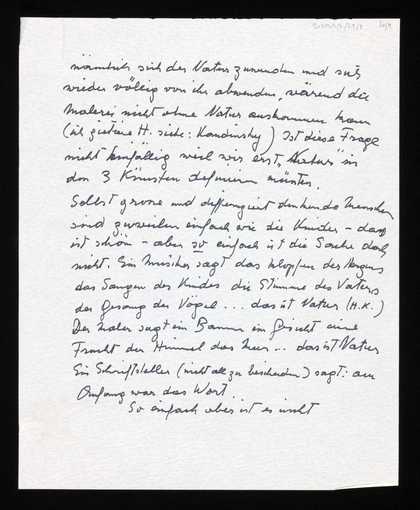 nämlich sich der Natur zuwenden und sich
wieder völlig von ihr abwenden, wärend die
Malerei nicht ohne Natur auskommen kann
(ich zitiere H. siehe: Kandinsky) Ist diese Frage
nicht hinfällig weil wir erst "Natur" in
den 3 Künsten definieren müssten.
Selbst grosse und differenziert denkende Menschen
sind zuweilen einfach wie die Kinder - das
ist schön - aber so einfach ist die Sache doch
nicht. Ein Musiker sagt das Klopfen des Herzens
das Saugen des Kindes die Stimme des Vaters
der Gesang der Vögel ... das ist Natur (H.K.)
Der Maler sagt ein Baum ein Gesicht eine
Frucht der Himmel das Meer ... das ist Natur
Ein Schriftsteller (nicht allzu bescheiden) sagt: am
Anfang war das Wort
So einfach aber ist es nicht